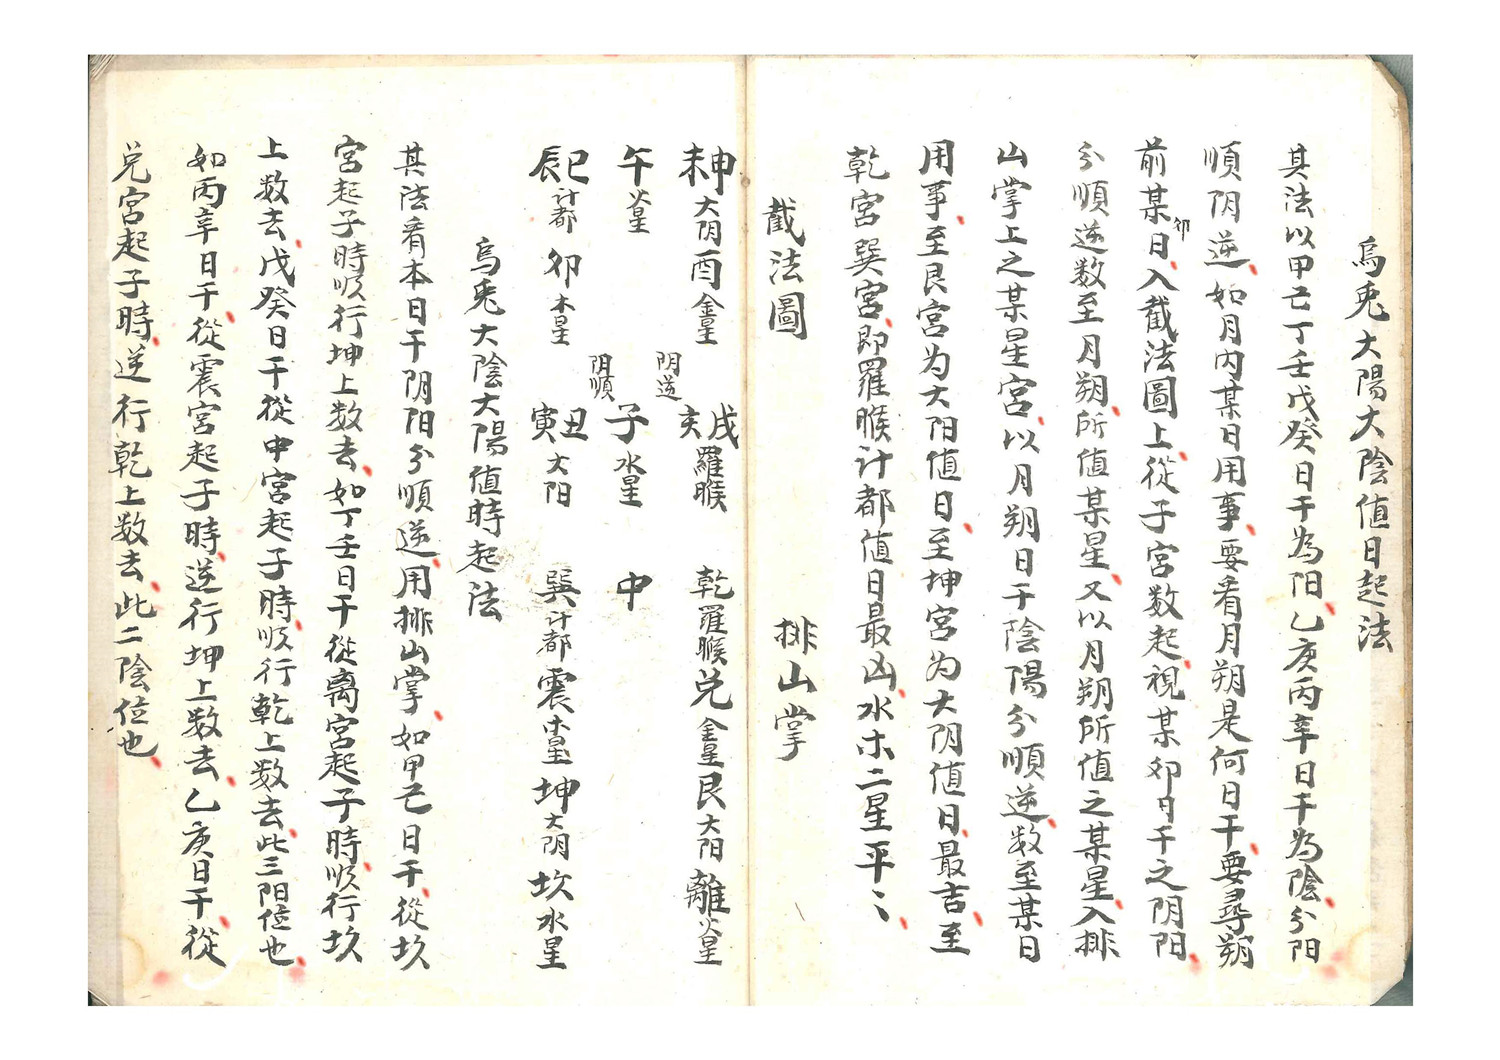 烏兎大陽大陰值日起法
其法以甲己丁壬戊癸日干為阳乙庚丙辛日干為陰分阳
順阴逆如月内某日用事要看月朔是何日干要尋朔
前某卯日入截法圖上從子宮数起視某卯日干之阴阳
分順逆数至月朔所值某星又以月朔所值之某星入排
山掌上之某星宮以月朔日干陰陽分順逆数至某日
用事至艮宮为大阳值日至坤宮为大阴值日最吉至
乾宮巽宮即羅睺计都值日最凶水木二星平〻
截法圖 排山掌
未申大阴酉金星 阴逆 戌亥羅睺 乾羅睺兑金星艮大阳離火星
午火星 阴順 子水星 中
辰巳计都卯木星 丑寅大阳 巽计都震木星坤大阴坎水星
烏兎大陰大陽值時起法
其法看本日干阴阳分順逆用排山掌如甲己日干從坎
宮起子時順行坤上数去如丁壬日干從离宮起子時順行坎
上数去戊癸日干從中宮起子時順行乾上数去此三阳位也
如丙辛日干從震宮起子時逆行坤上数去乙庚日干從
兑宮起子時逆行乾上数去此二陰位也